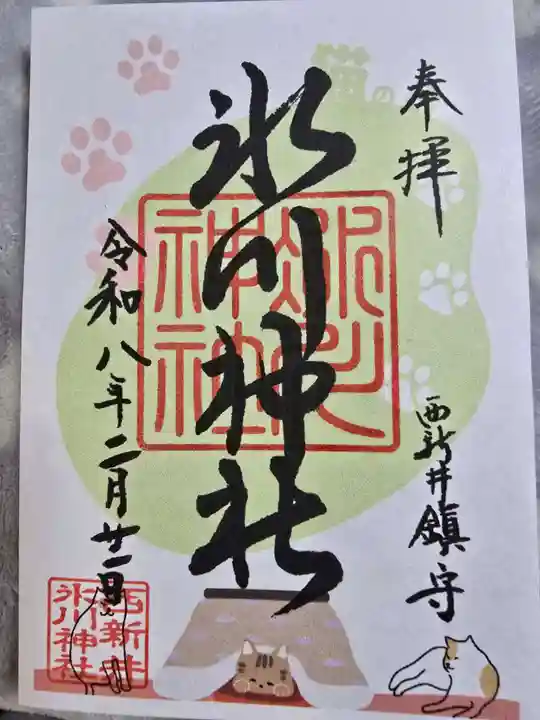 奉拝
西新井鎮守
氷川神社
令和八年二月廿一日
氷川
神社
西新井
氷川神社